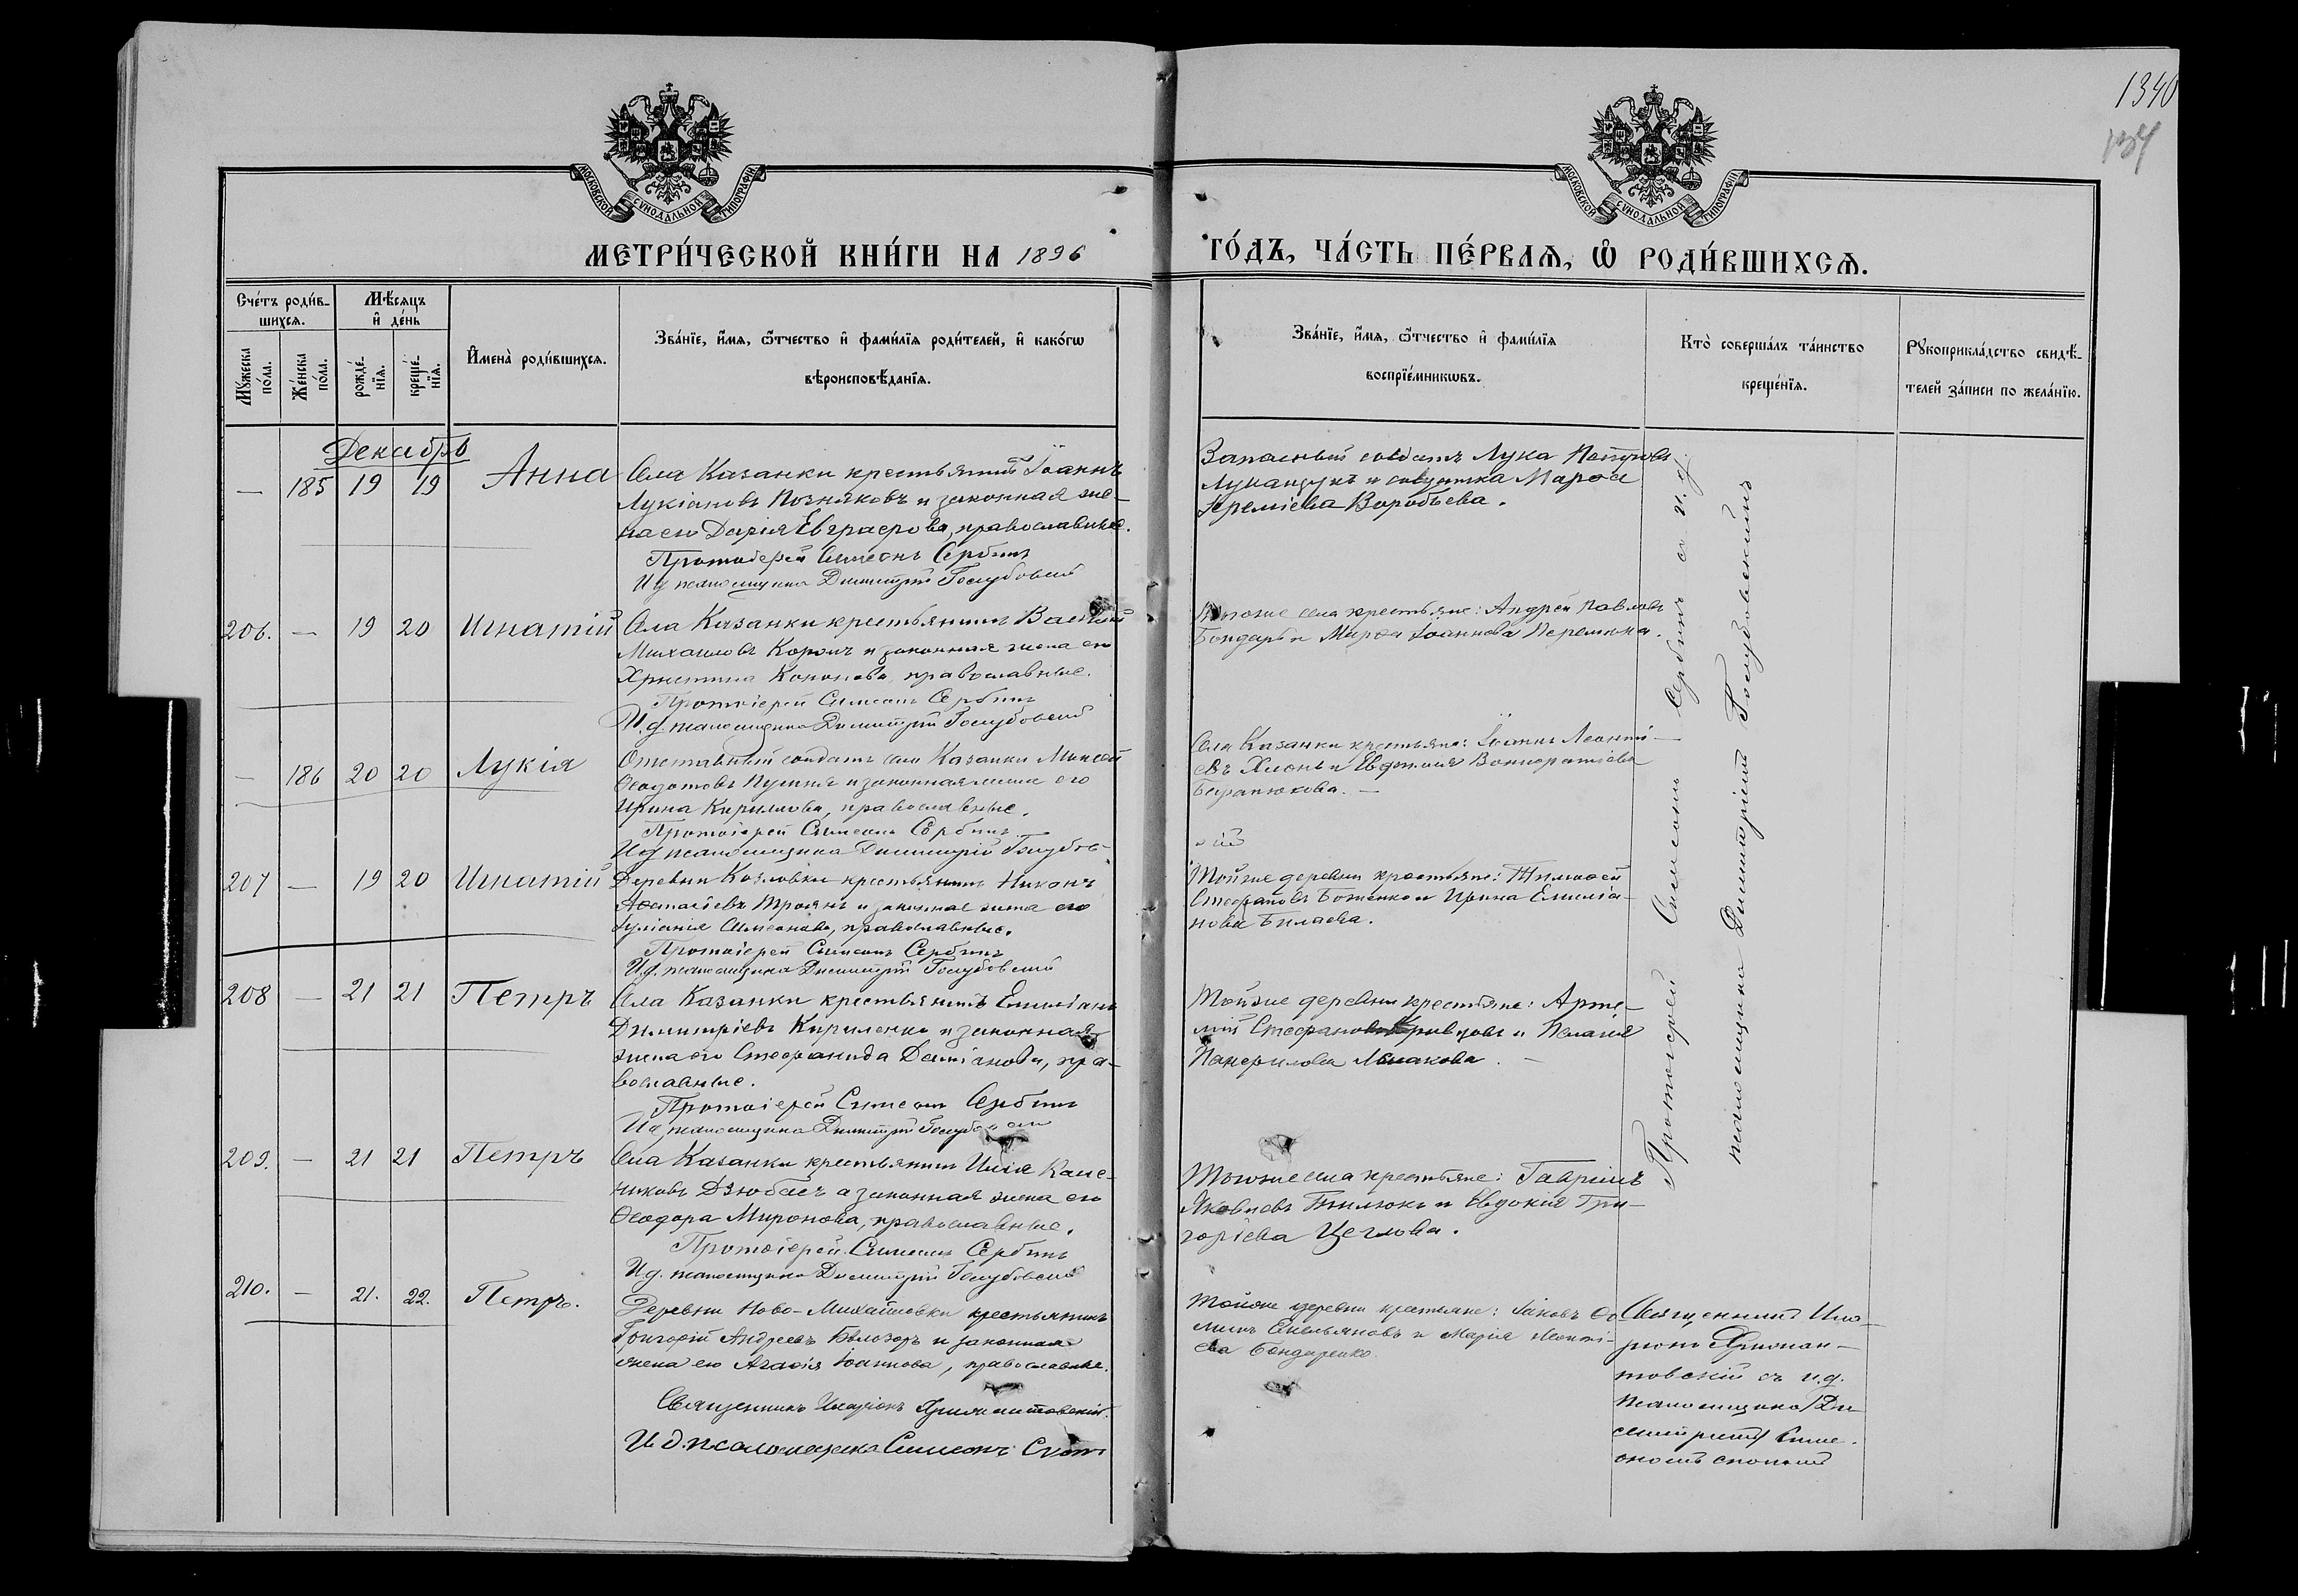 1340
МОСКОВСКОЙ СѴНОДАЛЬНОЙ ТИПОГРАФІИ
МОСКОВСКОЙ СѴНОДАЛЬНОЙ ТИПОГРАФІИ
МЕТРИ́ЧЕСКОЙ КНИ́ГИ НА 1896
ГО́ДЪ, ЧА́СТЬ ПЕ́РВАѦ, Ѿ РОДИ́ВШИХСѦ.
Сче́тъ роди́вшихсѧ.
Мꙋ́жеска по́ла.
Же́нска по́ла.
Мѣ́сѧцъ и҆ де́нь
рожде́нїѧ.
креще́нїѧ.
И҆мена̀ роди́вшихсѧ.
Зва́нїе, и҆́мѧ, ѻ҆́тчество и҆ фами́лїѧ роди́телей, и҆ како́гѡ
вѣроисповѣ́данїѧ.
Зва́нїе, и҆́мѧ, ѻ҆́тчество и҆ фами́лїѧ
воспрїе́мникѡвъ.
Кто̀ соверша́лъ та́инство
креще́нїѧ.
Рꙋкоприкла́дство свидѣ́-
телей за́писи по жела́нїю.
Декабрь
— 185 19 19 Анна
Села Казанки крестьянинъ Іоаннъ
Лукіановъ Позняковъ и законная же-
на его Дарія Евграфова, православные.
Протоіерей Симеонъ Сербинъ
И д псаломщика Димитрій Голубовскій
Запасный солдатъ Лука Петровъ
и солдатка Марѳа
Іереміева Воробьева.
206. — 19 20 Игнатій
Села Казанки крестьянинъ Василій
Михаиловъ и законная жена его
Христина Кононова, православные.
Протоіерей Симеонъ Сербинъ
И. д. псаломщика Димитрій Голубовскій
Тогоже села крестьяне: Андрей Павловъ
Бондарь и Марѳа Іоаннова
— 186 20 20 Лукія
Отставный солдатъ села Казанки Моисей
Ѳеодотовъ и законная жена его
Ирина Кириллова, православные.
Протоіерей Симеонъ Сербинъ
И д псаломщика Димитрій Голубов-
скій
Села Казанки крестьяне: Іоаннъ Леонті-
евъ и Евфимія
Баранюкова. —
207 — 19 20 Игнатій
Деревни Козловки крестьянинъ Никонъ
Аѳанасіевъ Троянъ и законная жена его
Іуліанія Симеонова, православные.
Протоіерей Симеонъ Сербинъ
И. д. псаломщика Димитрій Голубовскій
Тойже деревни крестьяне: Тимоѳей
Стефановъ Боженко и Ирина Емиліа-
нова Билаева.
208 — 21 21 Петръ
Села Казанки крестьянинъ Емиліанъ
Димитріевъ Кириленко и законная
жена его Стефанида Даміанова, пра-
вославные.
Протоіерей Симеонъ Сербинъ
И д псаломщика Димитрій Голубовскій
Тойже деревни крестьяне: Арте-
мій Стефановъ Кривцовъ и Пелагія
Панфилова
209. — 21 21 Петръ
Села Казанки крестьянинъ Илія Кале-
никовъ Дзюбасъ а законная жена его
Ѳеодора Миронова, православные.
Протоіерей Симеонъ Сербинъ
И д. псаломщика Димитрій Голубовскій
Тогоже села крестьяне: Гавріилъ
Яковлевъ и Евдокія Гри-
горіева Цеглова.
210. — 21. 22. Петръ.
Деревни Ново-Михайловки крестьянинъ
Григорій Андреевъ Бѣлозоръ и законная
жена его Агаѳія Іоаннова, православные.
Священникъ Иларіонъ
И д. псаломщика Симеонъ
Тойже деревни крестьяне: Іаковъ
Емельяновъ и Марія Леонті-
ева Бондаренко.
Протоіерей Симеонъ Сербинъ съ и. д.
псаломщика Димитріемъ Голубовскимъ
Священникъ Ила-
ріонъ
съ и. д.
псаломщика Ди-
митріемъ Симе-